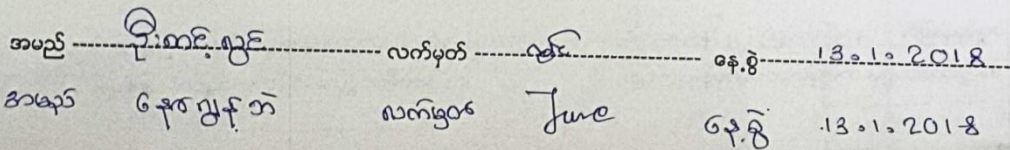 အမည် ---------- မိုးတင့်လွင် ---------- လက်မှတ် ---------- နေ့စွဲ ---------- 13.1.2018
အမည် နော်ဂျွန်ဘဲ လက်မှတ် June နေ့စွဲ 13.1.2018